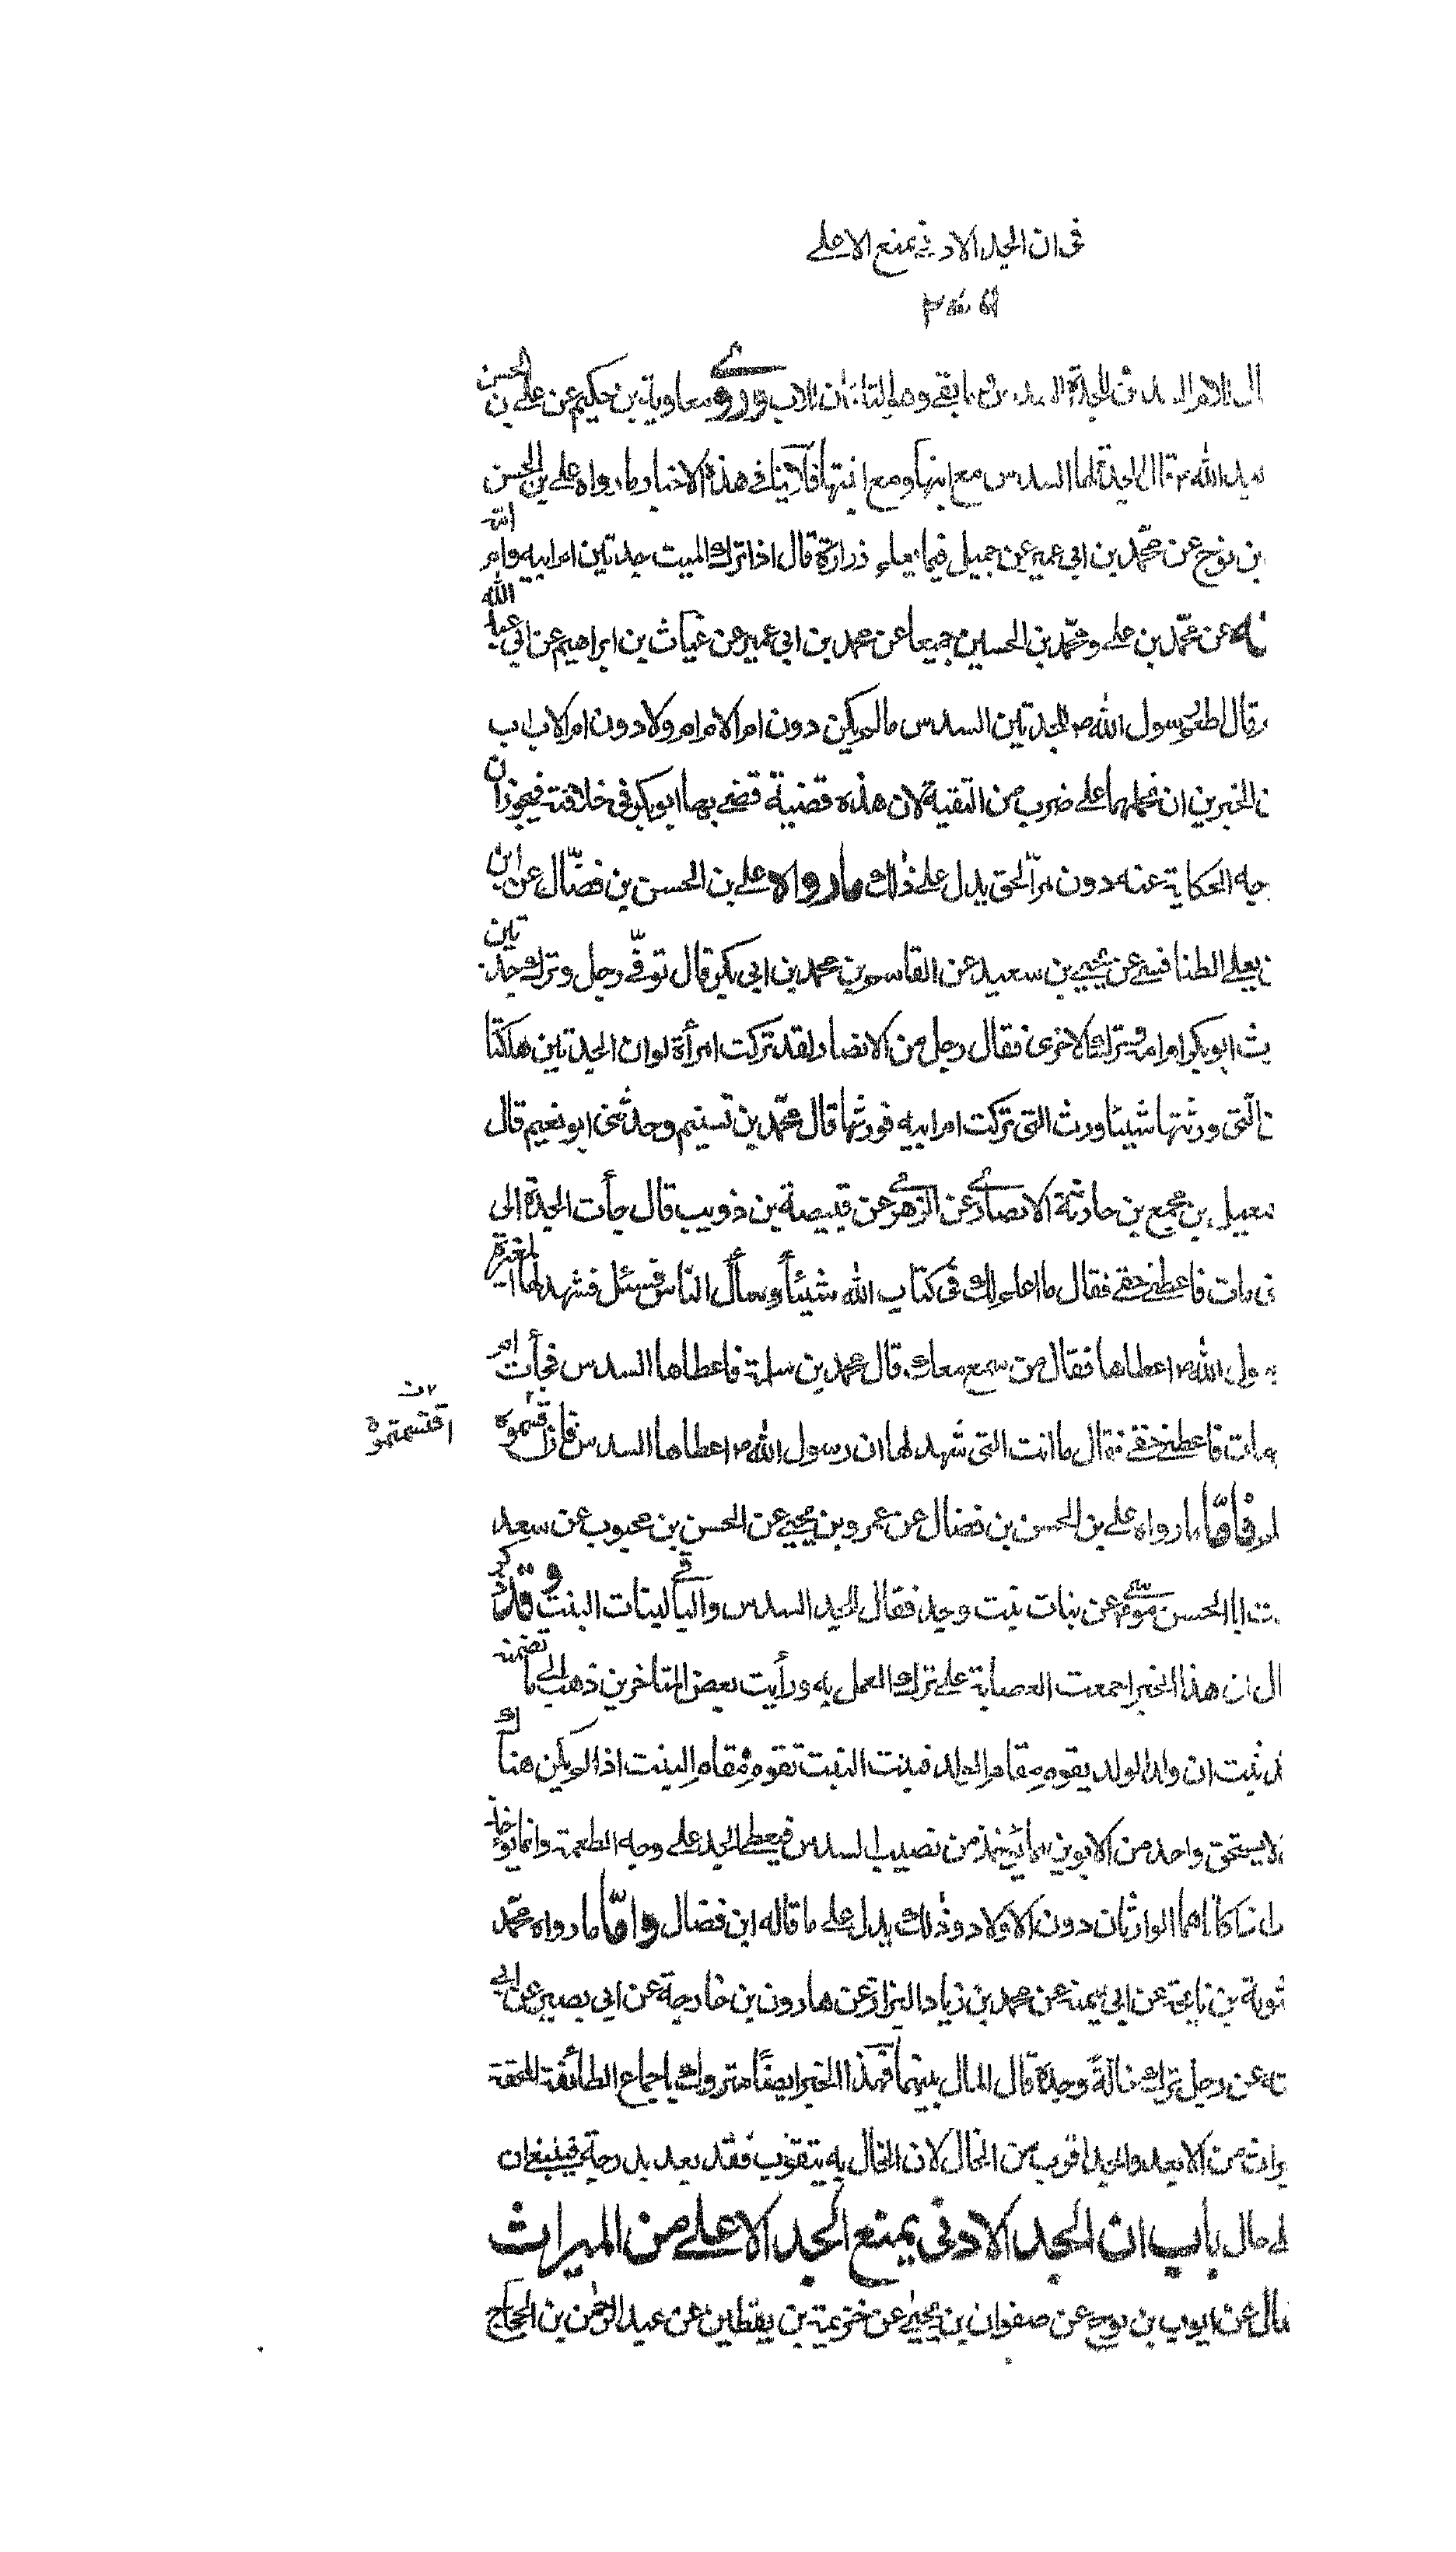 في ان الجد الادنى يمنع الاعلى
ال للام السدس للجدة السدس ما بقي وهو الثلثان للاب وروى معاوية بن حكيم عن علي بن الحسن
عبد الله ع قال الجدة لها السدس مع ابنها ومع ابنتها فلا ينافي هذه الاخبار ما رواه علي بن الحسن
بن نوح عن محمد بن ابي عمير عن جميل فيما يعلم زرارة قال اذا ترك الميت جدتين ام ابيه وام امه
عنه عن محمد بن علي ومحمد بن الحسين جميعا عن محمد بن ابي عمير عن غياث بن ابراهيم عن ابي عبد الله
م قال اطعم رسول الله ص الجدتين السدس ما لم يكن دون ام الام ام ولا دون ام الاب اب
ن الخبرين ان نحملهما على ضرب من التقية لان هذه قضية قضى بها ابو بكر في خلافته فيجوز ان
وجه الحكاية عنه دون مر الحق يدل على ذلك ما رواه علي بن الحسن بن فضّال عن ابن
ن يعلى الطنافسي عن يحيى بن سعيد عن القاسم بن محمد بن ابي بكر قال توفّي رجل وترك جدتين
رث ابو بكر ام امه وترك الاخرى فقال رجل من الانصار لقد تركت امرأة لو ان الجدتين هلكتا
ن الّتي ورثتها شيئا وورث التي تركت ام ابيه فورثها قال محمّد بن تسنيم وحدثني ابو نعيم قال
معيل بن مجمع بن حارثة الانصاري عن الزهري عن قبيصة بن ذويب قال جأت الجدة الى
ني مات فاعطني حقي فقال ما اعلم لك في كتاب الله شيئاً وسأل الناس فسئل فشهد لها المغيرة
رسول الله ص اعطاها فقال من سمع معك قال محمد بن سلمة فاعطاها السدس فجأت ام
مات فاعطني حقي فقال ما انت التي شهد لها ان رسول الله ص اعطاها السدس فان قسمتموه
اقتسمتموه
فامّا ما رواه علي بن الحسن بن فضال عن عمرو بن يحيى عن الحسن بن محبوب عن سعد
ت ابا الحسن موسى ع عن بنات بنت وجد فقال للجد السدس والباقي لبنات البنت وقد ذكر
ال ان هذا الخبر اجمعت العصابة على ترك العمل به ورأيت بعض المتاخرين ذهب الى ما تضمنه
ثبت ان ولد الولد يقوم مقام الولد فبنت البنت تقوم مقام البنت اذا لم يكن هناك
لا يستحق واحد من الابوين ما يؤخذ من نصيب السدس فيعطى الجد على وجه الطعمة وانما يؤخذ
اذا كانا هما الوارثان دون الاولاد وذلك يدل على ما قاله ابن فضال وامّا ما رواه محمّد
عن محمد بن زياد البزاز عن هارون بن خارجة عن ابي بصير عن ابي
ته عن رجل ترك خالةً وجدة قال المال بينهما فهذا الخبر ايضاً متروك باجماع الطائفة المحقة
يراث من الابعد والجد اقرب من الخال لان الخال به يتقرب فقد بعد بدرجة فينبغي ان
حال باب ان الجد الادنى يمنع الجد الاعلى من الميراث
ضال عن ايوب بن نوح عن صفوان بن يحيى عن خزيمة بن يقطين عن عبد الرحمن بن الحجاج